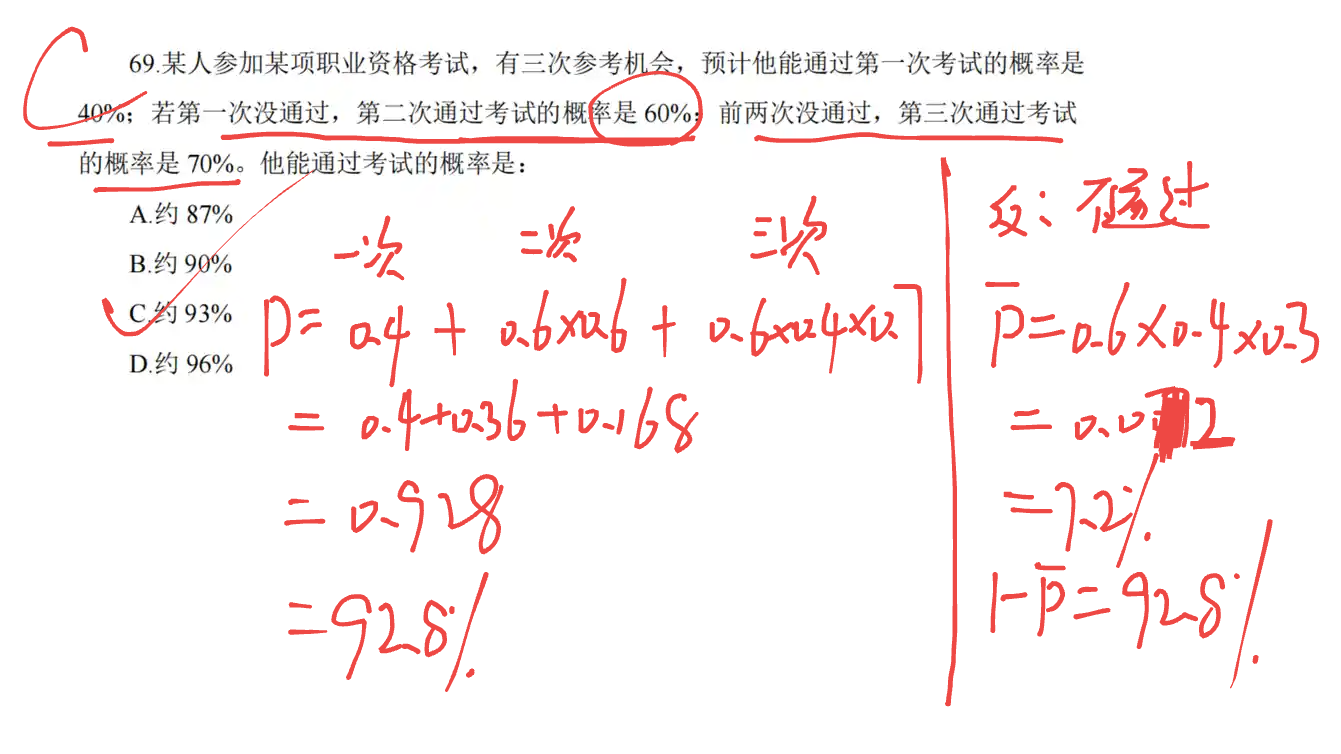 C
69.某人参加某项职业资格考试，有三次参考机会，预计他能通过第一次考试的概率是
40%；若第一次没通过，第二次通过考试的概率是 60%；前两次没通过，第三次通过考试
的概率是 70%。他能通过考试的概率是：
A.约 87%
B.约 90%
C.约 93%
D.约 96%
一次 二次 三次
P= 0.4 + 0.6×0.6 + 0.6×0.4×0.7
= 0.4+0.36+0.168
= 0.928
=92.8%
反：不通过
P̅=0.6×0.4×0.3
=0.072
=7.2%
1-P̅=92.8%